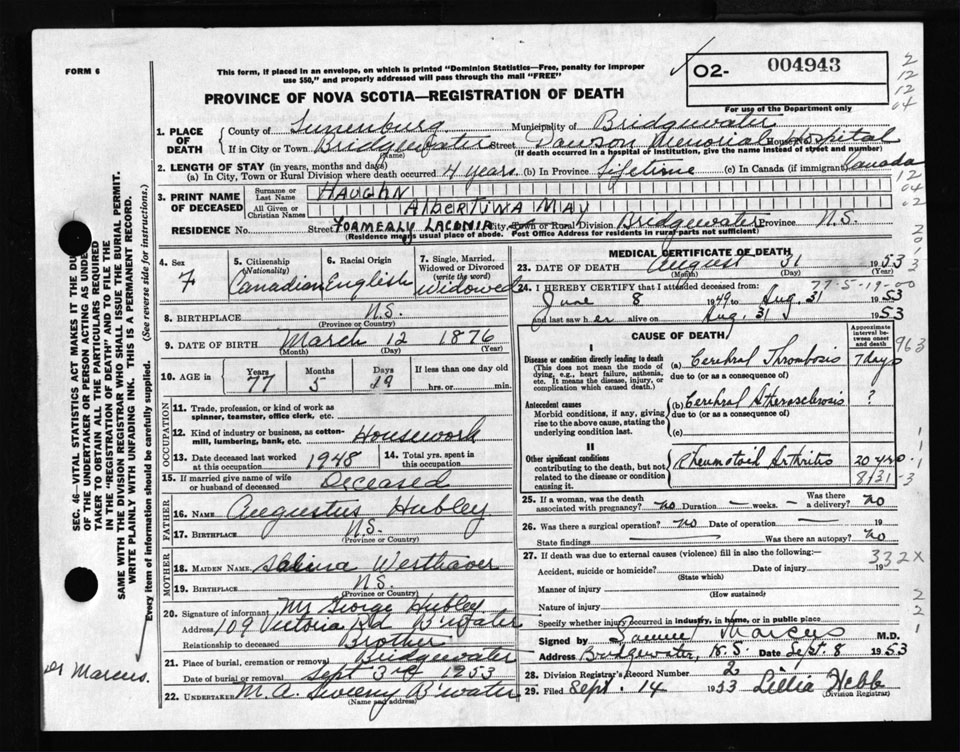 FORM 6
This form, if placed in an envelope, on which is printed "Dominion Statistics—Free, penalty for improper
use $50," and properly addressed will pass through the mail "FREE"
O2- 004943
For use of the Department only
PROVINCE OF NOVA SCOTIA—REGISTRATION OF DEATH
1. PLACE OF DEATH
County of Lunenburg Municipality of Bridgewater
If in City or Town Bridgewater Street Dawson Memorial Hospital
(Name) (If death occurred in a hospital or institution, give the name instead of street and number)
2. LENGTH OF STAY (in years, months and days)
(a) In City, Town or Rural Division where death occurred 4 years (b) In Province Lifetime (c) In Canada (if immigrant) Canada
3. PRINT NAME OF DECEASED
Surname or Last Name HAUGHN
All Given or Christian Names AlbertiNA MAY
RESIDENCE No. Street FORMERLY LACONIA City, Town or Rural Division Bridgewater Province N.S.
(Residence means usual place of abode. Post Office Address for residents in rural parts not sufficient)
4. Sex F
5. Citizenship (Nationality) Canadian
6. Racial Origin English
7. Single, Married, Widowed or Divorced (write the word) Widowed
8. BIRTHPLACE N.S.
(Province or Country)
9. DATE OF BIRTH March 12 1876
(Month) (Day) (Year)
10. AGE in Years 77 Months 5 Days 19 If less than one day old
hrs. or min.
OCCUPATION
11. Trade, profession, or kind of work as
spinner, teamster, office clerk, etc.
12. Kind of industry or business, as cotton-
mill, lumbering, bank, etc. Housework
13. Date deceased last worked
at this occupation 1948
14. Total yrs. spent in
this occupation
15. If married give name of wife
or husband of deceased Deceased
FATHER
16. NAME Augustus Hubley
17. BIRTHPLACE N.S.
(Province or Country)
MOTHER
18. MAIDEN NAME Westhaver
19. BIRTHPLACE N.S.
(Province or Country)
20. Signature of informant Mr George Hubley
Address 109 Victoria Rd B'water
Relationship to deceased Brother
21. Place of burial, cremation or removal Bridgewater
Date of burial or removal Sept 3rd 1953
22. UNDERTAKER M. A. Sweeny B'water
(Name and address)
MEDICAL CERTIFICATE OF DEATH
23. DATE OF DEATH August 31 1953
(Month) (Day)
77-5-19-00
24. I HEREBY CERTIFY that I attended deceased from:
June 8 1949 to Aug. 31 1953
and last saw her alive on Aug. 31 1953
CAUSE OF DEATH
Approximate interval between onset and death
I
Disease or condition directly leading to death
(This does not mean the mode of
dying, e.g., heart failure, asthenia,
etc. It means the disease, injury, or
complication which caused death.)
(a) Cerebral Thrombosis 7 days
due to (or as a consequence of)
Antecedent causes
Morbid conditions, if any, giving
rise to the above cause, stating the
underlying condition last.
(b) Cerebral Atherosclerosis ?
due to (or as a consequence of)
(c)
II
Other significant conditions
contributing to the death, but not
related to the disease or condition
causing it.
Rheumatoid Arthritis 20 yrs
8/31-3
25. If a woman, was the death
associated with pregnancy? no Duration weeks. Was there a delivery? no
26. Was there a surgical operation? no Date of operation 19
State findings Was there an autopsy? no
27. If death was due to external causes (violence) fill in also the following:—
332X
Accident, suicide or homicide? Date of injury 19
(State which)
Manner of injury
(How sustained)
Nature of injury
Specify whether injury occurred in industry, in home, or in public place
Signed by Samuel Marcus M.D.
Address Bridgewater, N.S. Date Sept. 8 1953
28. Division Registrar's Record Number 2
29. Filed Sept. 14 1953 Lillia Hebb
(Division Registrar)
SEC. 46—VITAL STATISTICS ACT MAKES IT THE DU
OF THE UNDERTAKER OR PERSON ACTING AS UNDE
TAKER TO OBTAIN ALL THE PARTICULARS REQUIRED
IN THE "REGISTRATION OF DEATH" AND TO FILE THE
SAME WITH THE DIVISION REGISTRAR WHO SHALL ISSUE THE BURIAL PERMIT.
WRITE PLAINLY WITH UNFADING INK. THIS IS A PERMANENT RECORD.
Every item of information should be carefully supplied. (See reverse side for instructions.)
Dr Marcus.
2
12
12
04
12
04
02
963